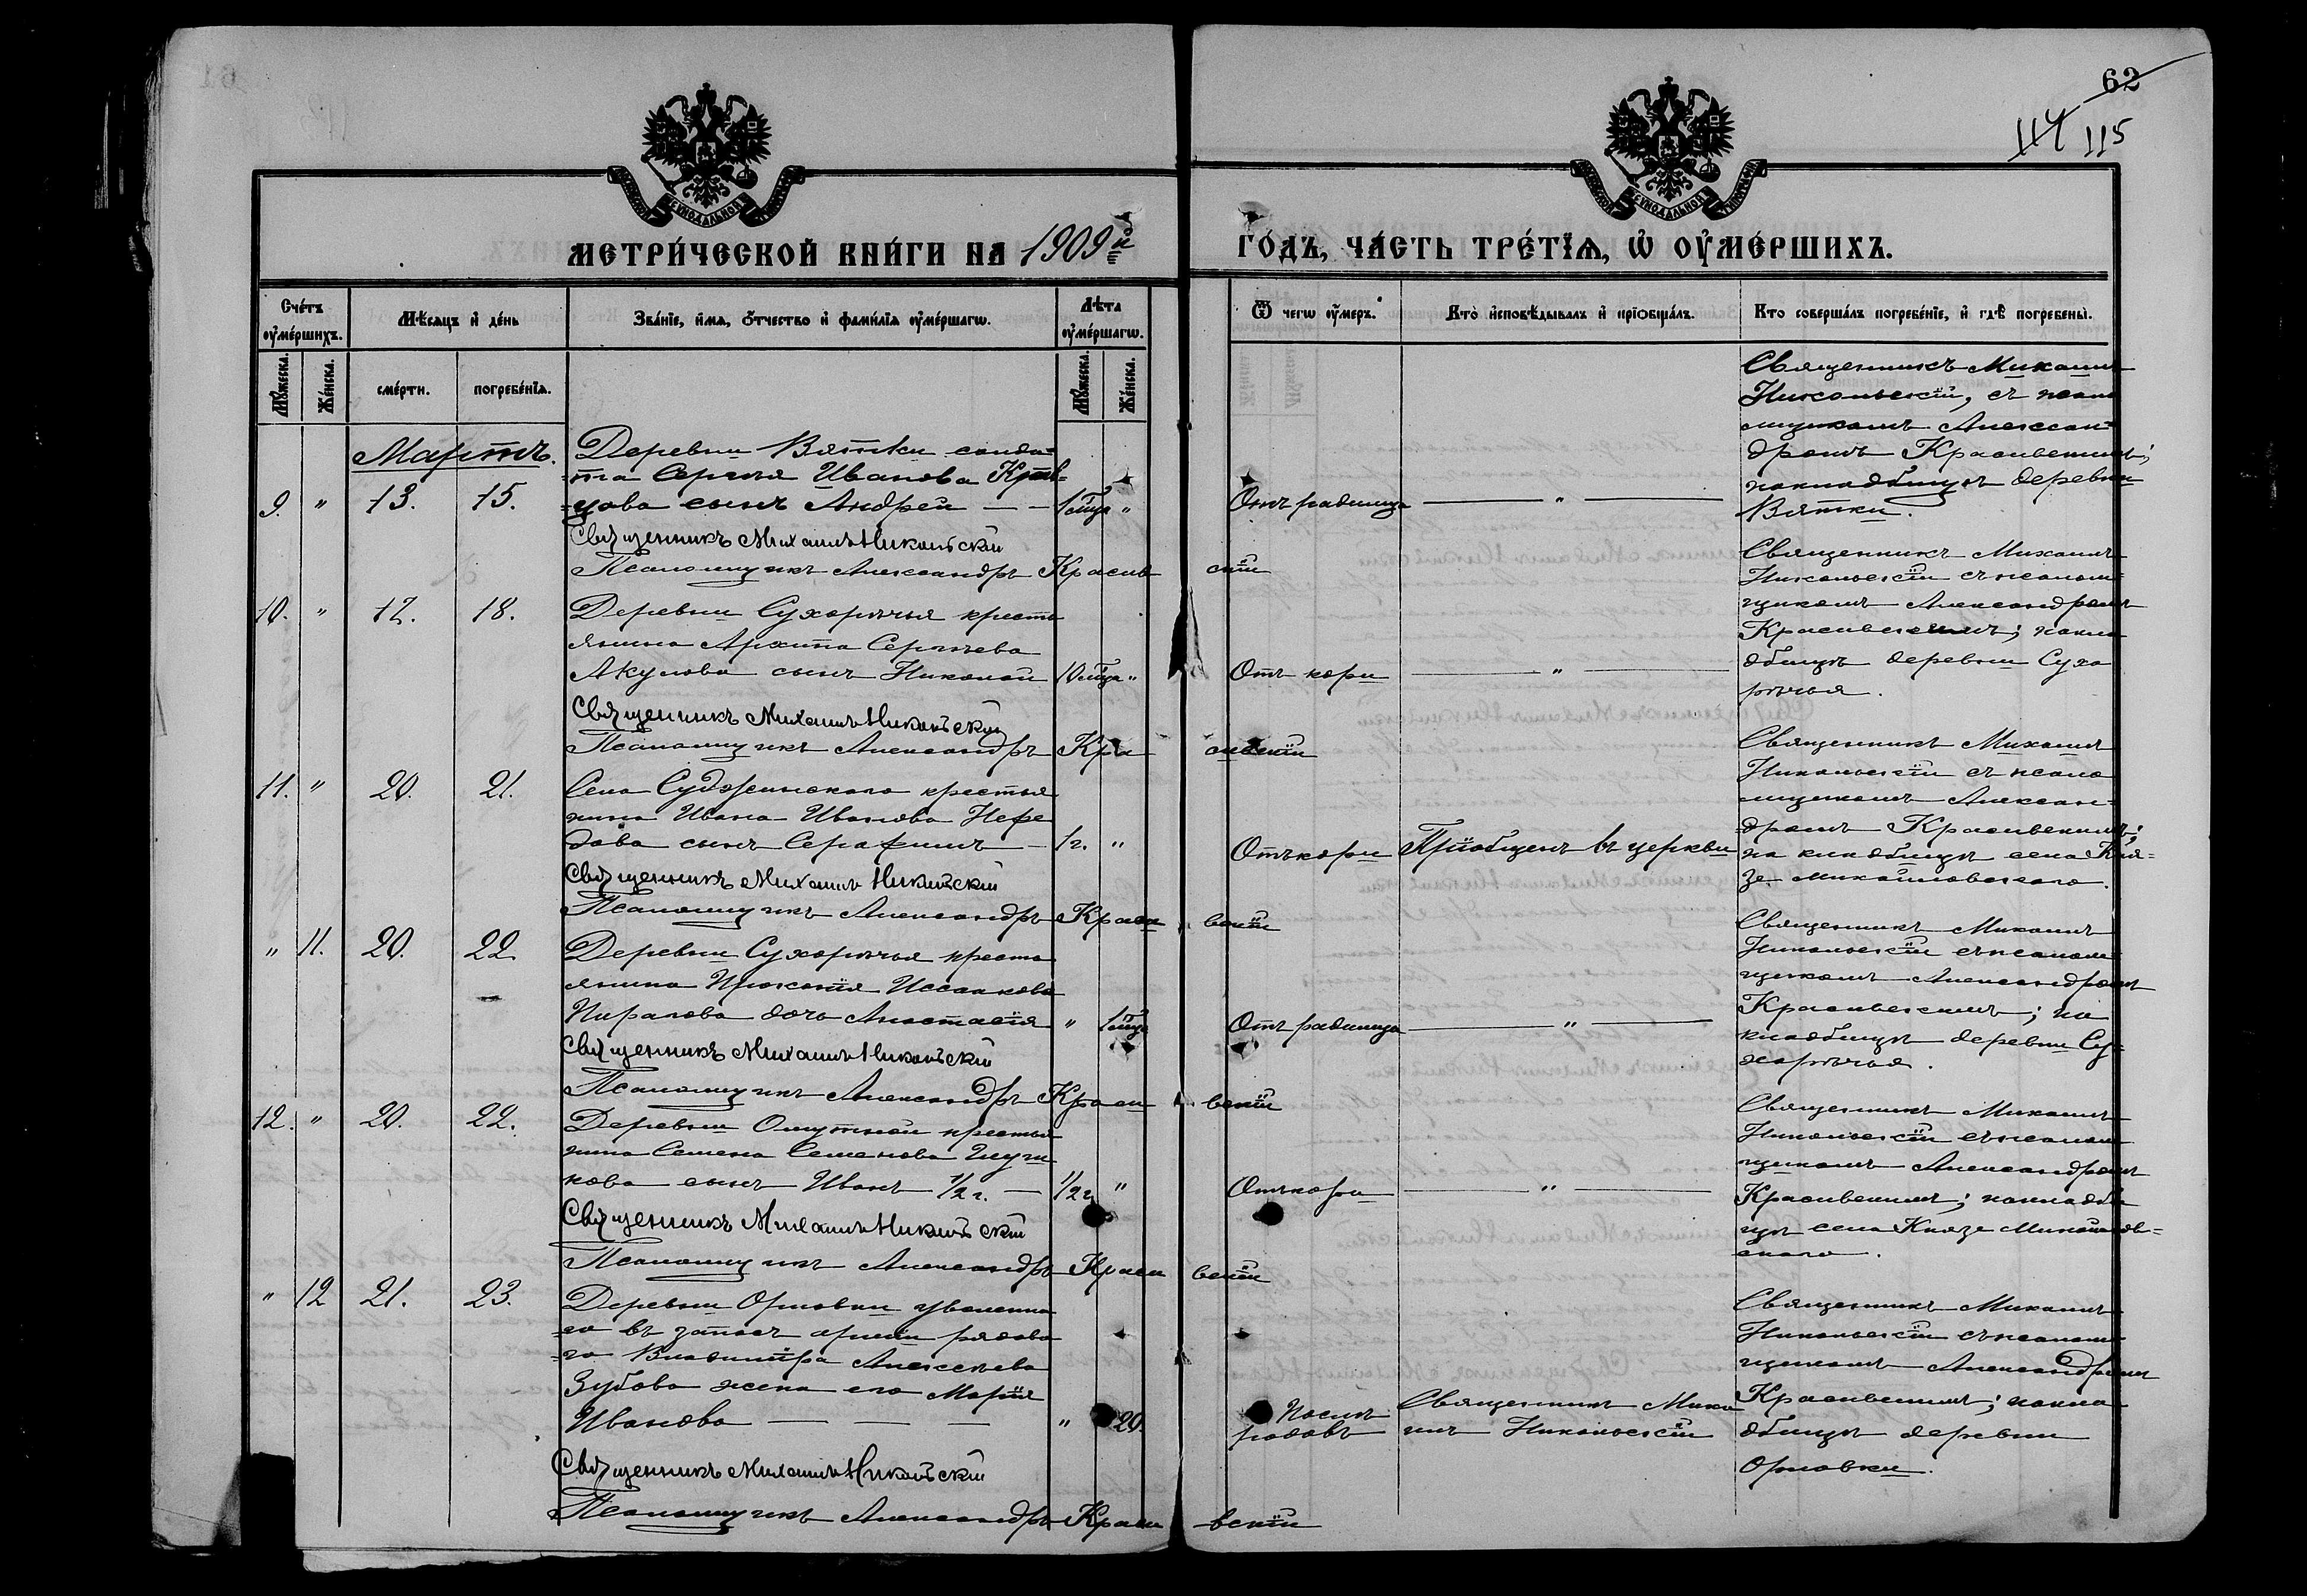 62
114 115
МЕТРИ́ЧЕСКОЙ КНИ́ГИ НА 1909й
ГО́ДЪ, ЧА́СТЬ ТРЕ́ТЇѦ, Ѡ҆ ОУ҆МЕ́РШИХЪ.
Сче́тъ оу҆ме́ршихъ.
Мѣ́сѧцъ и҆ де́нь
Зва́нїе, и҆́мѧ, ѻ҆́тчество и҆ фами́лїѧ оу҆ме́ршагѡ.
Лѣ́та оу҆ме́ршагѡ.
Ѿ чегѡ̀ оу҆́меръ.
Кто̀ и҆сповѣ́дывалъ и҆ прїѻбща́лъ.
Кто̀ соверша́лъ погребе́нїе, и҆ гдѣ̀ погребены̀.
Мꙋ́жеска.
Же́нска.
сме́рти.
погребе́нїѧ.
Мꙋ́жеска.
Же́нска.
Мартъ.
9. " 13. 15.
Деревни Вятки солда-
та Сергѣя Иванова
цова сынъ Андрей — — 1 мца "
Отъ родимца — " —
Священникъ Михаилъ
Никольскій, съ псало
мщикомъ Алексан-
дромъ Красивскимъ;
на кладбищѣ деревни
Вятки.
Священникъ Михаилъ Никольскій
Псаломщикъ Александръ Красивскій
10. " 17. 18.
Деревни Сухорѣчья кресть
янина Архипа Сергѣева
Акулова сынъ Николай 10 мца "
Отъ кори — " —
Священникъ Михаилъ
Никольскій съ псалом-
щикомъ Александромъ
Красивскимъ; на кла
дбищѣ деревни Сухо
рѣчья.
Священникъ Михаилъ Никольскій
Псаломщикъ Александръ Красивскій
11. " 20. 21.
Села Суджинскаго крестья
нина Ивана Иванова Нефе
дова сынъ Серафимъ — 1 г. "
Отъ кори Пріобщенъ въ церкви
Священникъ Михаилъ
Никольскій съ псало
мщикомъ Алексан-
дромъ Красивскимъ;
на кладбищѣ села Кня-
зе-Михайловскаго.
Священникъ Михаилъ Никольскій
Псаломщикъ Александръ Красивскій
" 11. 20. 22.
Деревни Сухорѣчья кресть
янина Прокопія Иссакова
дочь Анастасія " 1 мца
Отъ родимца — " —
Священникъ Михаилъ
Никольскій съ псалом-
щикомъ Александромъ
Красивскимъ; на
кладбищѣ деревни Су-
хорѣчья.
Священникъ Михаилъ Никольскій
Псаломщикъ Александръ Красивскій
12. " 20. 22.
Деревни Омутной крестья
нина Семена Семенова
кова сынъ Иванъ 1/2 г. — 1/2 г. "
Отъ кори — " —
Священникъ Михаилъ
Никольскій съ псалом
щикомъ Александромъ
Красивскимъ; на кладби
щѣ села Князе-Михайлов-
скаго.
Священникъ Михаилъ Никольскій
Псаломщикъ Александръ Красивскій
" 12 21. 23.
Деревни Орловки уволенна
го въ запасъ арміи рядова
го Владиміра Алексѣева
Зубова жена его Марія
Иванова — — — " 20.
Послѣ
родовъ
Священникъ Миха
илъ Никольскій
Священникъ Михаилъ
Никольскій съ псалом
щикомъ Александромъ
Красивскимъ; на кла
дбищѣ деревни
Орловки.
Священникъ Михаилъ Никольскій
Псаломщикъ Александръ Красивскій